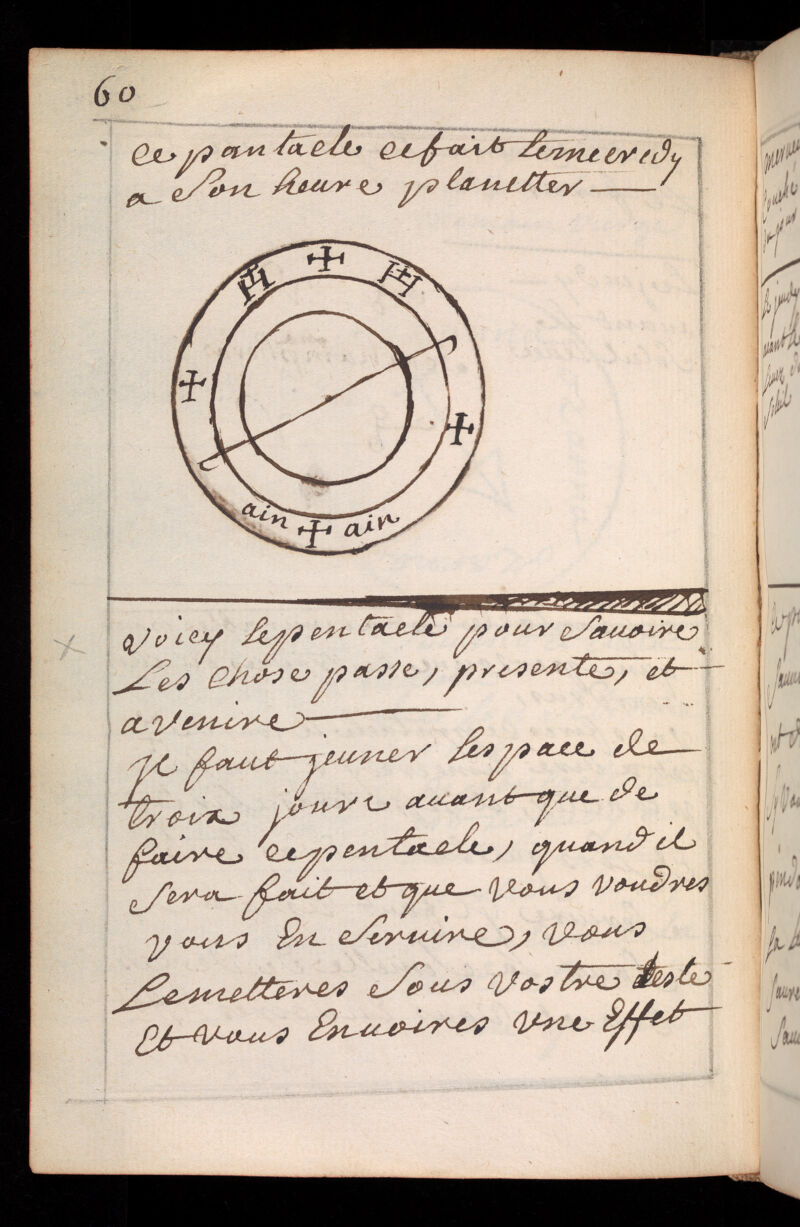 60
ce pantacle ce fait lemecredy
a son heure planetter
ain ain
voicy lepentacle pour savoire
Les chose passe, presente, et
avenire
jl faut jeuner lespace de
troix jours avant que de
faire cepentacle, quand il
sera fait et que vous voudres
vous En servire, vous
Lemetteres sous vostre teste
Et vous Envoires vne Effet